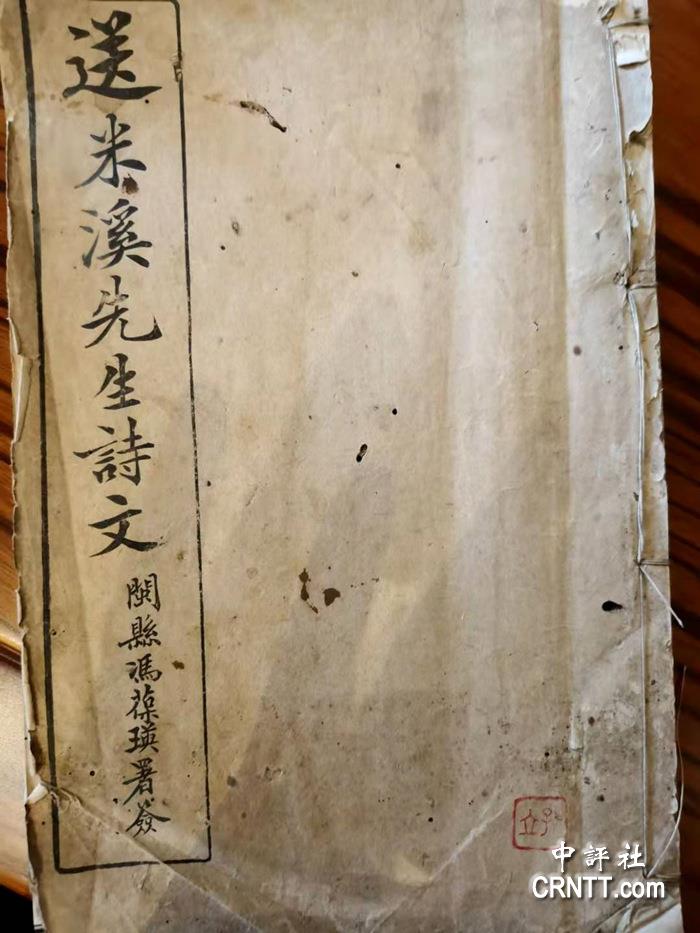 送米溪先生詩文
閩縣馮葆瑛署簽
中評社
CRNTT.com